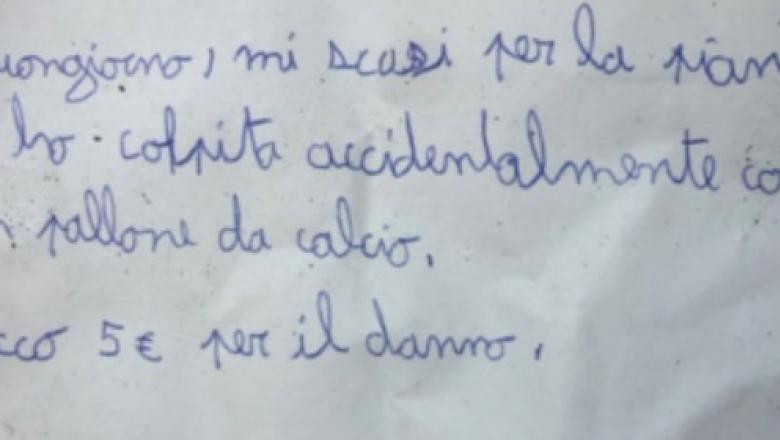 uongiorno, mi scusi per la pian
ho colpita accidentalmente co
n pallone da calcio.
cco 5€ per il danno.